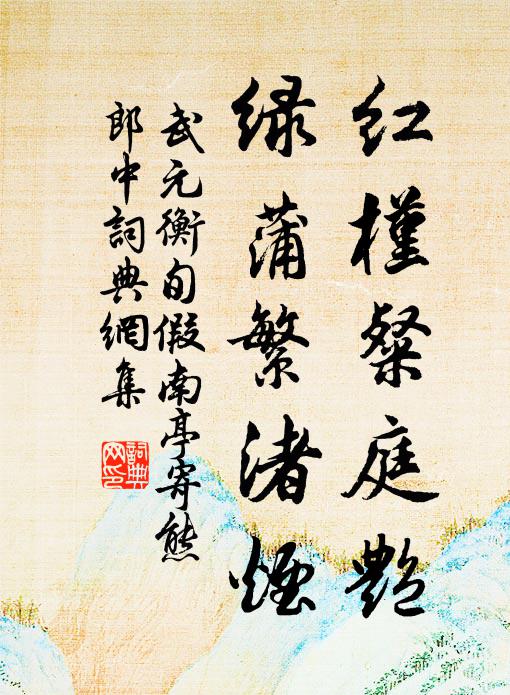 红槿粲庭艷
緑蒲繁渚煙
武元衡旬假南亭寄熊
郎中詞典網集
詞典网印